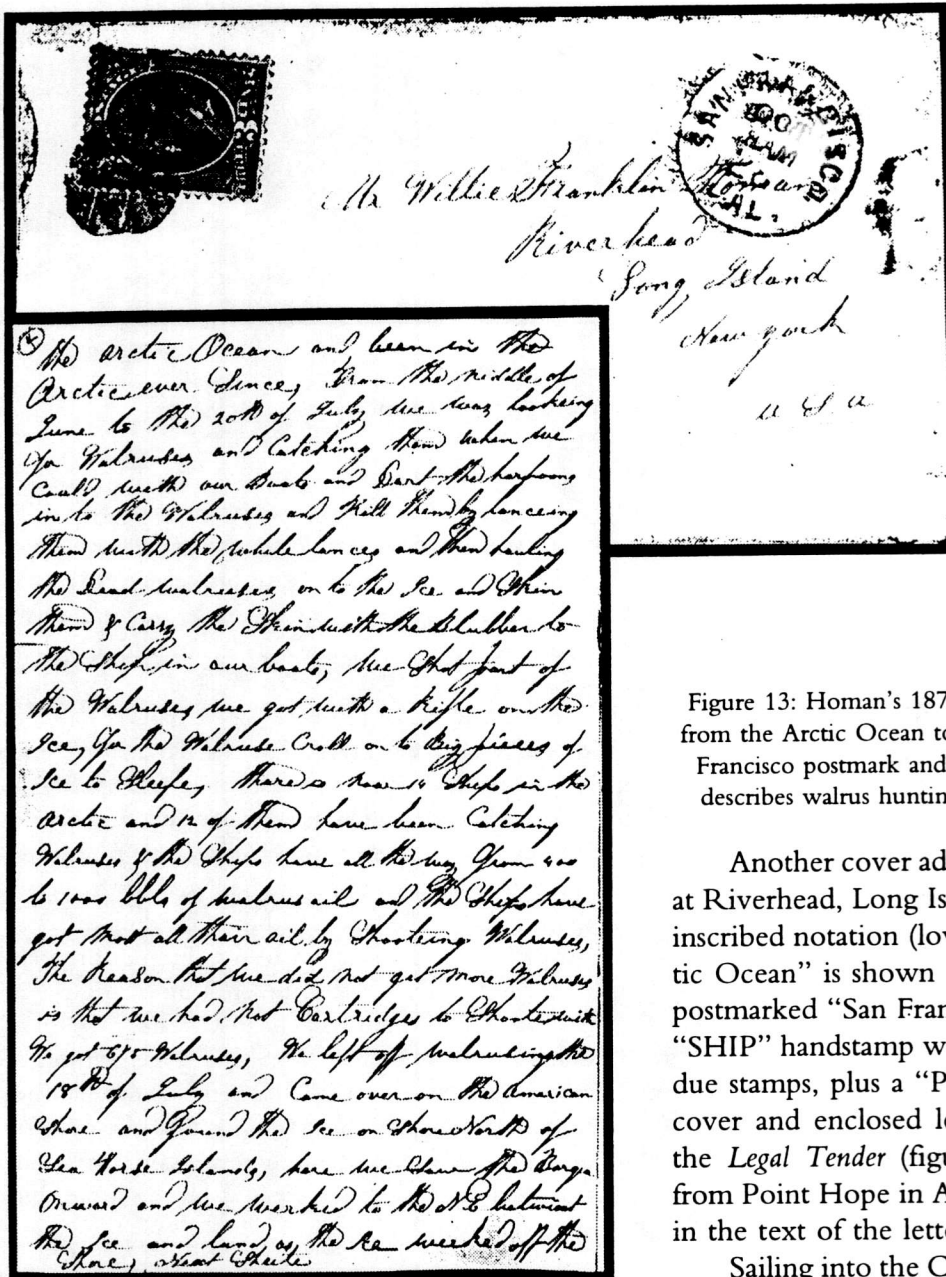 SAN FRANCISCO
OCT
AM
CAL.
Mr Willie Franklin Homan
Riverhead
Long Island
New york
U S A
the arctic Ocean and been in the
Arctic ever Since, From the middle of
June to the 20th of July we was lookeing
for Walruses and Catching them when we
Could with our Boats and Dart the harpoons
in to the Walruses and Kill them by lanceing
them with the whale lances and then hauling
the Dead walruses on to the Ice and Skin
them & Carry the Skin with the Blubber to
the Ship in our boats, We Shot part of
the Walruses we got with a Rifle on the
Ice, for the Walruse Croll on to Big pieces of
Ice to Sleepe, there is now 14 Ships in the
arctic and 12 of them have been Catching
Walruses & the Ships have all the way from 400
to 1000 bbls of walrus oil and the Ships have
got most all their oil by Shooteing Walruses,
The Reason that we did not get more Walruses
is that we had not Cartridges to Shoote with
We got 675 Walruses, We left off walrusing the
18th of July and Came over on the american
Shore and found the Ice on Shore North of
Sea Horse Islands, here we the
onward and we worked to the N.E. betwixt
the Ice and land as the Ice worked off the
Shore, Next Sheite
Figure 13: Homan's 187
from the Arctic Ocean to
Francisco postmark and
describes walrus huntin
Another cover ad
at Riverhead, Long Is
inscribed notation (lov
tic Ocean" is shown
postmarked "San Fran
"SHIP" handstamp w
due stamps, plus a "P
cover and enclosed le
the Legal Tender (figu
from Point Hope in A
in the text of the lett
Sailing into the C